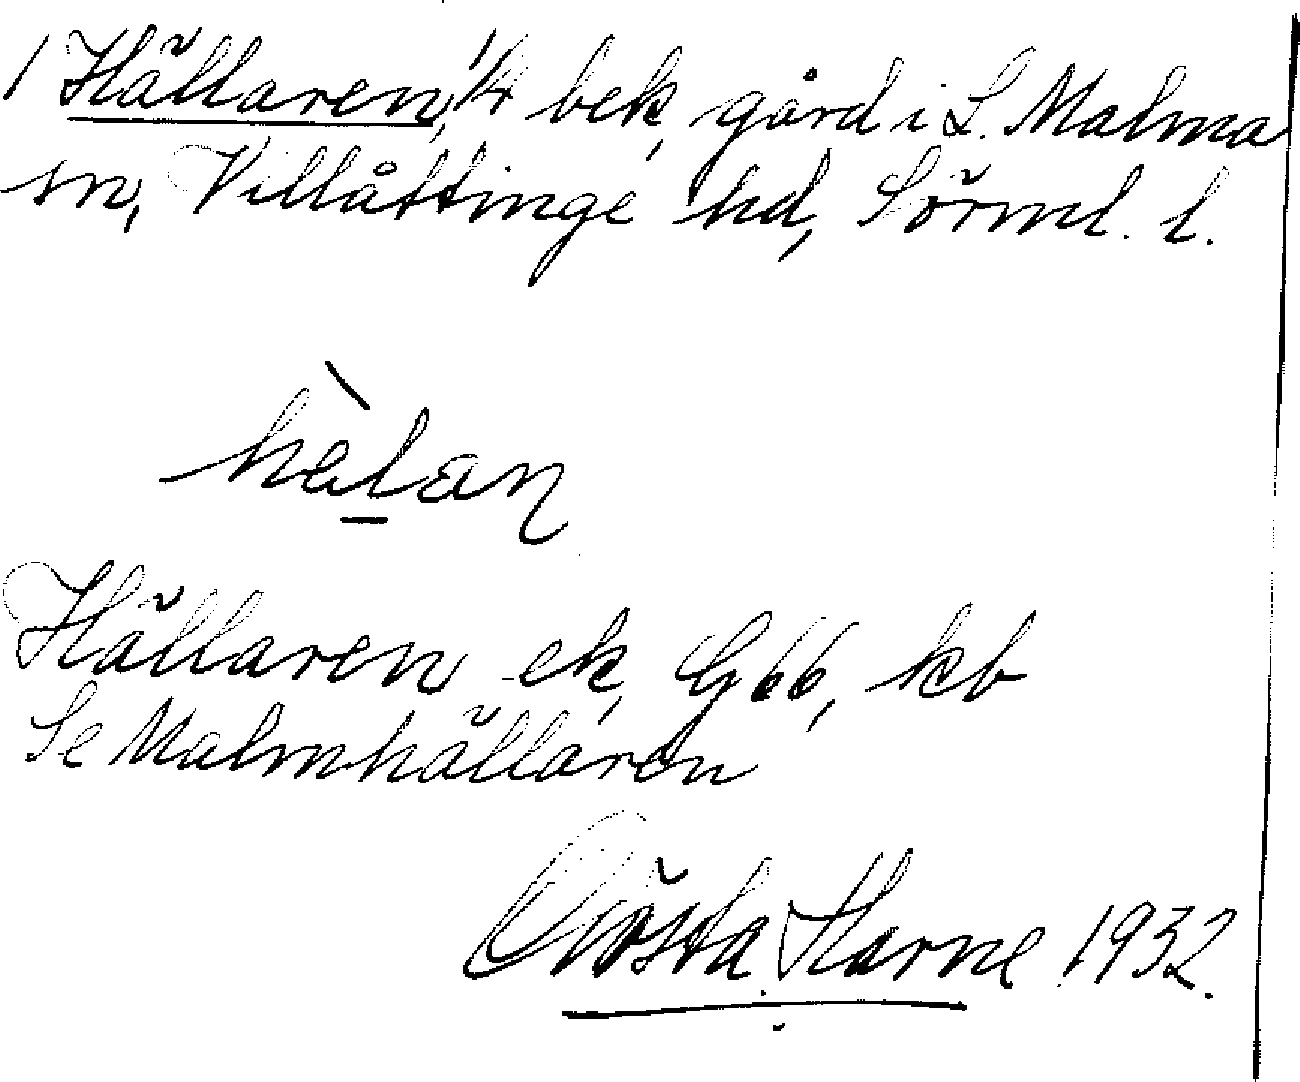 1 Hällaren, 1/4 bek, gård i L. Malma
sn, Villåttinge hd, Sörml. l.
hèlan
Hällaren ek, G 66, kb
Se Malmhällaren
Gösta Harne 1932.